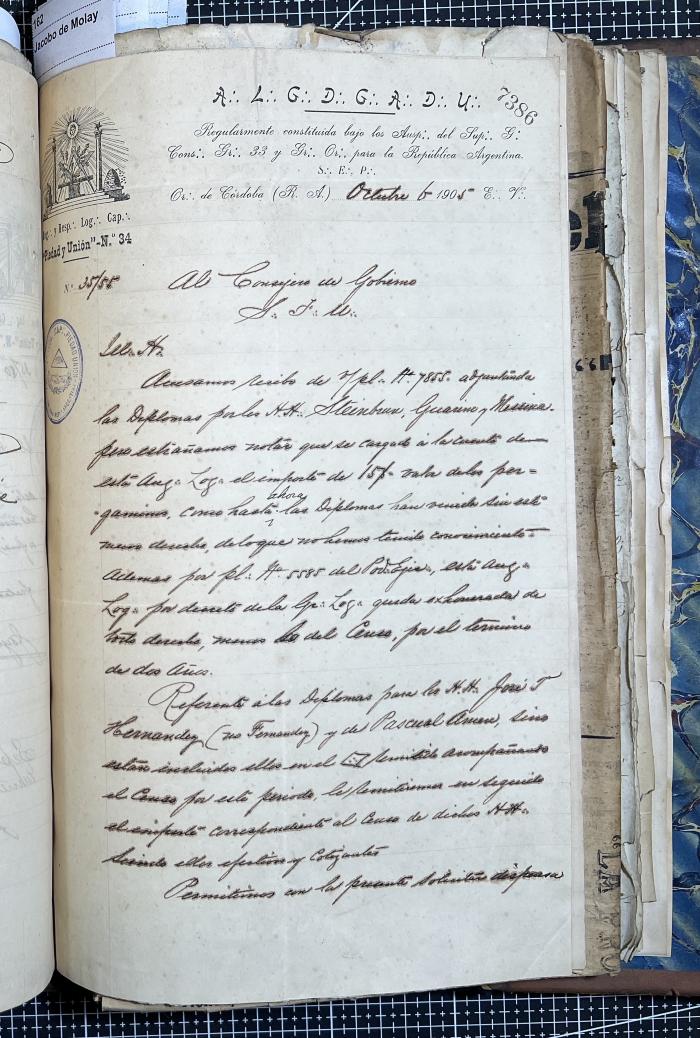 162
Jacobo de Molay
A∴ L∴ G∴ D∴ G∴ A∴ D∴ U∴
7386
Regularmente constituida bajo los Ausp∴ del Sup∴ G∴
Cons∴ Gr∴ 33 y Gr∴ Or∴ para la República Argentina.
S∴ E∴ P∴
Or∴ de Córdoba (R. A.) Octubre 6 1905 E∴ V∴
y Resp∴ Log∴ Cap∴
"Piedad y Unión"-N.º 34
N.º 35/55
Al Consejero de Gobierno
S∴ F∴ U∴
Ill∴ H∴
Acusamos recibo de v/pl∴ Nº 7855 adjuntando
las Diplomas por los H.H∴ Steinbrun, Guarino y Messina
pero estrañamos notar que se cargado á la cuenta de
está Aug∴ Log∴ el importe de 15$ valor delos per=
gaminos, como hasta ahora las Diplomas han venido sin esti
menos derecho, delo que no hemos tenido conocimiento=
Ademas por pl∴ Nº 5585 del Pod∴ Ejec∴, está Aug∴
Log∴ por decreto de la Gr∴ Log∴ queda exhonerada de
todo derecho, menos lo del Censo, por el termino
de dos Años.
Referente á las Diplomas para los H.H. José T
Hernandez (no Fernandez) y de Pascual Amen, sino
están incluidos ellos en el remitido acompañando
el Censo por este periodo, le remitiremos en seguida
el importe correspondiente al Censo de dichos H.H∴
siendo ellos efectivos y Cotizantes
Permitimos con la presente solicitar dispensa